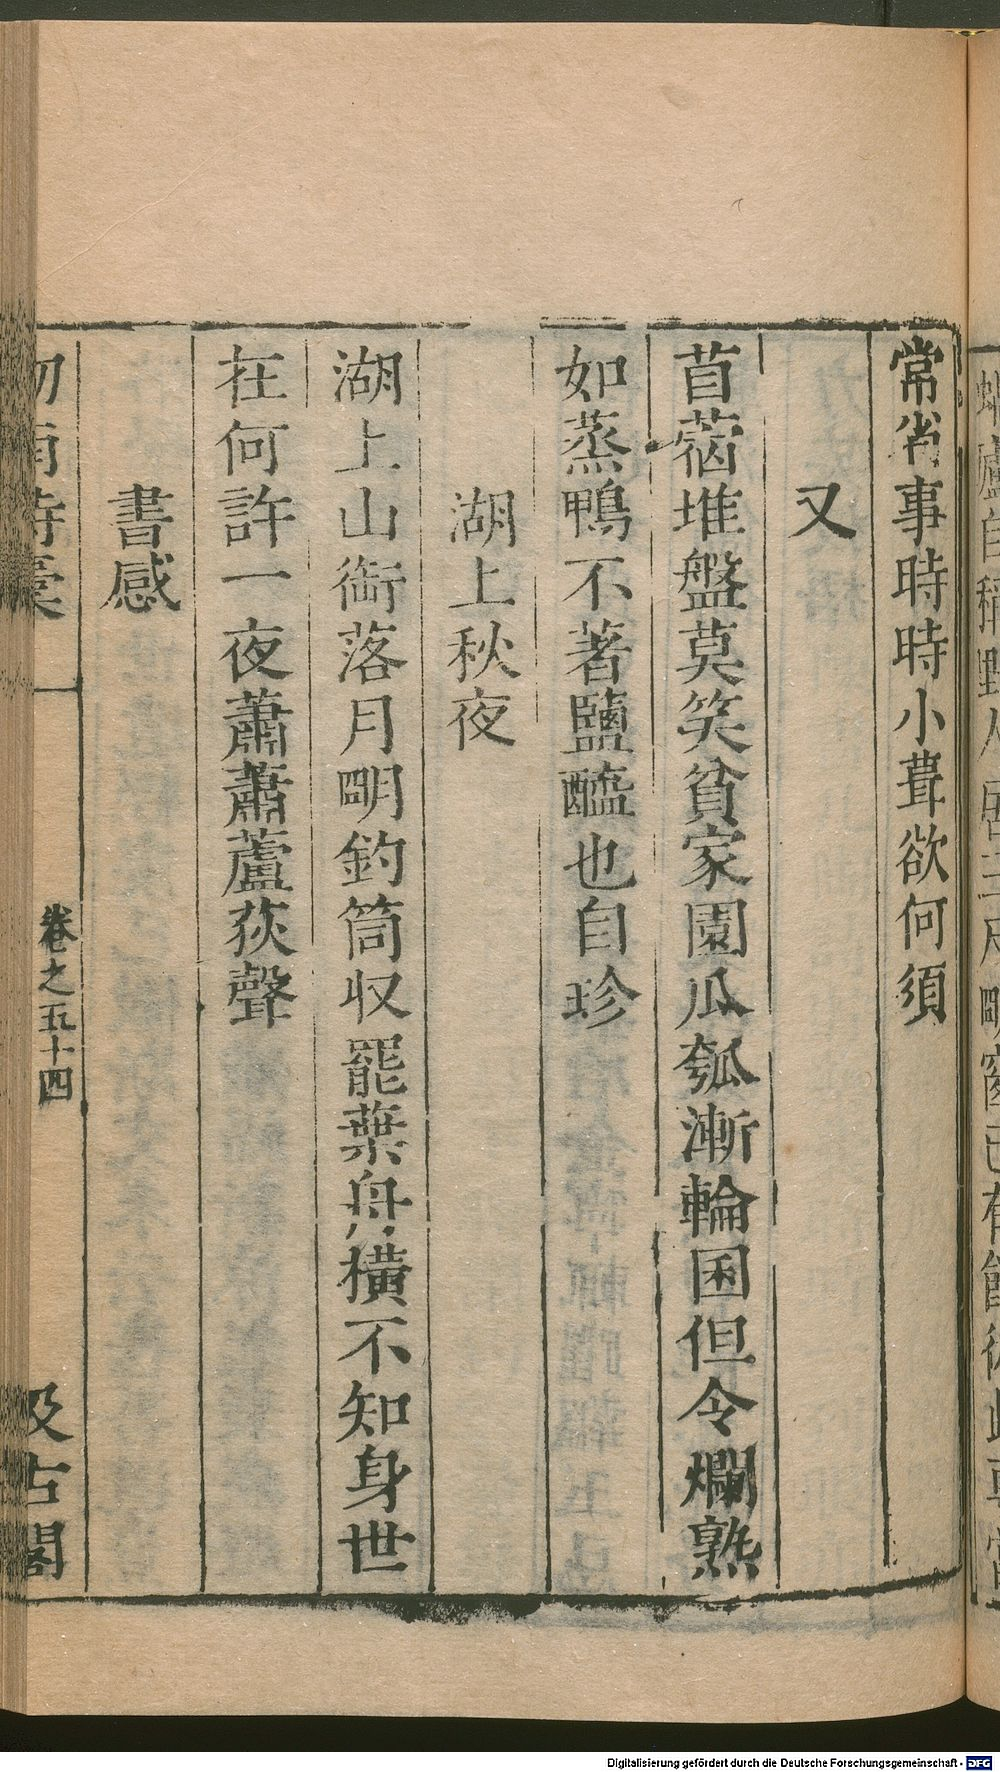 常省事時時小葺欲何須
又
苜蓿堆盤莫笑貧家園瓜瓠漸輪囷但令爛熟
如蒸鴨不著鹽醯也自珍
湖上秋夜
湖上山銜落月明釣筒収罷葉舟橫不知身世
在何許一夜蕭蕭蘆荻聲
書感
劍南詩稾
卷之五十四
汲古閣
Digitalisierung gefördert durch die Deutsche Forschungsgemeinschaft - DFG